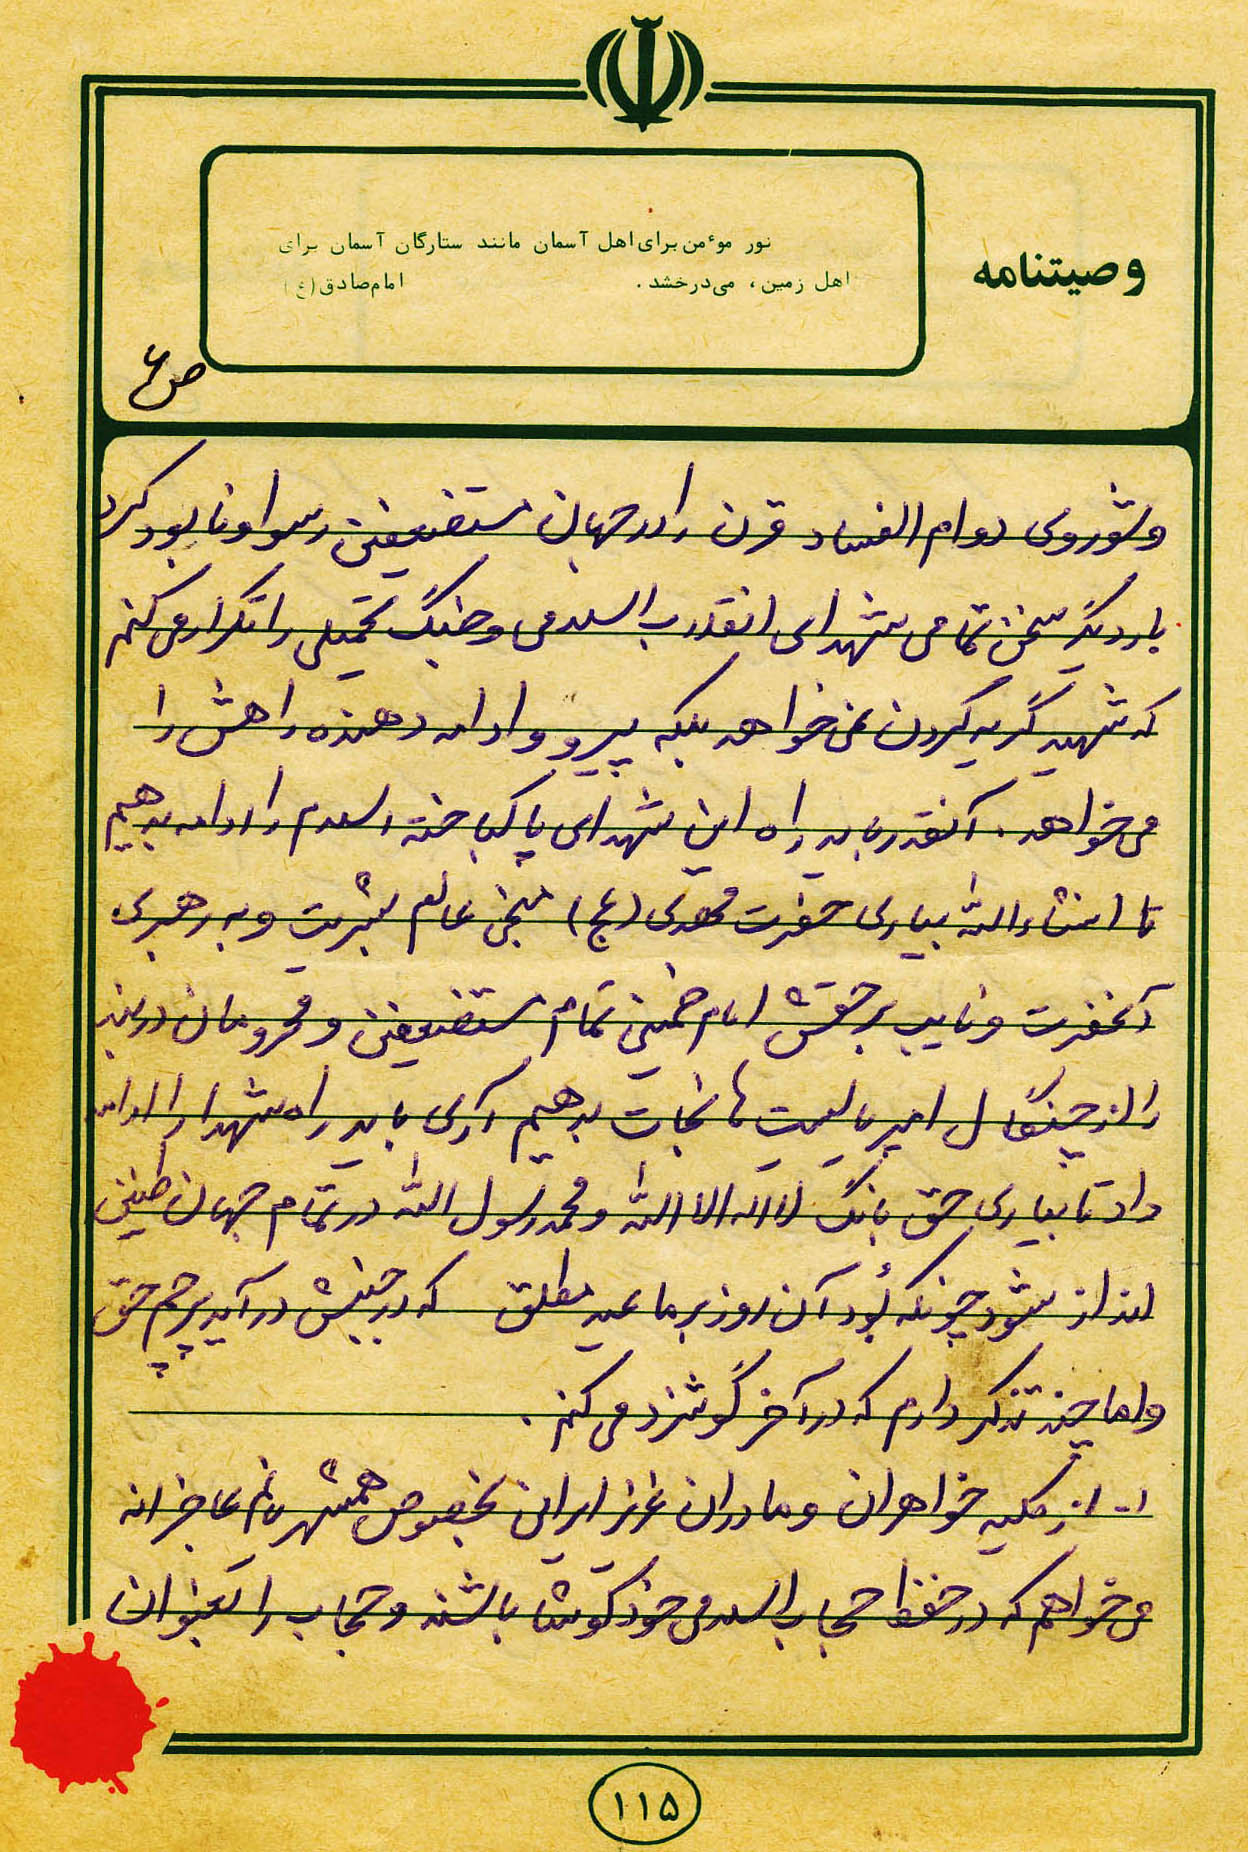 وصیتنامه
نور موءمن برای اهل آسمان مانند ستارگان آسمان برای
اهل زمین، می‌درخشد. امام صادق (ع)
ص ۶
و شوروی دوام الفساد قرن را در جهان مستضعفین رسوا و نابود کرد
بار دیگر سخن تمامی شهدای انقلاب اسلامی و جنگ تحمیلی را تکرار می کنم
که شهید گریه کردن نمی خواهد بلکه پیرو و ادامه دهنده راهش را
می خواهد. آنقدر باید راه این شهدای پاکباخته اسلام را ادامه بدهیم
تا انشاءالله بیاری حضرت مهدی (عج) منجی عالم بشریت و به رهبری
آنحضرت و نایب برحقش امام خمینی تمام مستضعفین و محرومان دربند
را از چنگال امپریالیست ها نجات بدهیم آری باید راه شهدا را ادامه
داد تا بیاری حق بانگ لا اله الا الله و محمد رسول الله در تمام جهان طنین
انداز شود چونکه بُود آن روز بر ما عید مطلق که در جنبش در آید پرچم حق
و اما چند تذکر دارم که در آخر گوشزد می کنم.
۱- از کلیه خواهران و مادران عزیز ایرانی بخصوص همشهریانم عاجزانه
می خواهم که در حفظ حجاب اسلامی خود کوشا باشند و حجاب را بعنوان
۱۱۵